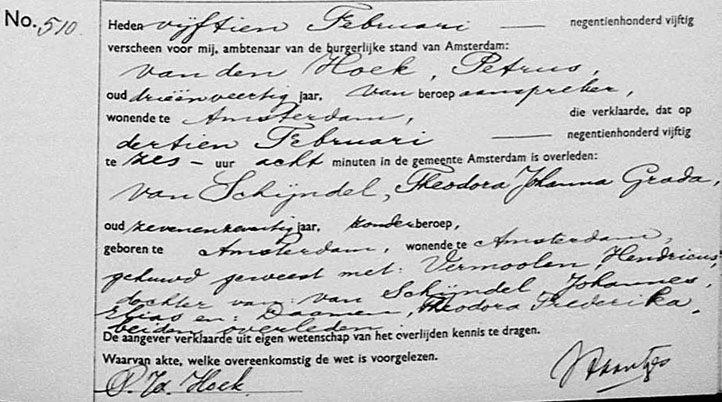 No. 510.
Heden vijftien Februari — negentienhonderd vijftig
verscheen voor mij, ambtenaar van de burgerlijke stand van Amsterdam:
van den Hoek, Petrus,
oud drieënveertig jaar, van beroep aanspreker,
wonende te Amsterdam, die verklaarde, dat op
dertien Februari — negentienhonderd vijftig
te zes — uur acht minuten in de gemeente Amsterdam is overleden:
van Schijndel, Theodora Johanna Grada,
oud jaar, zonder beroep,
geboren te Amsterdam, wonende te Amsterdam,
gehuwd geweest met: Vermoolen, Hendricus,
dochter van: van Schijndel, Johannes,
Elias en: Daamen, Theodora Frederika,
beiden overleden
De aangever verklaarde uit eigen wetenschap van het overlijden kennis te dragen.
Waarvan akte, welke overeenkomstig de wet is voorgelezen.
P. vd. Hoek